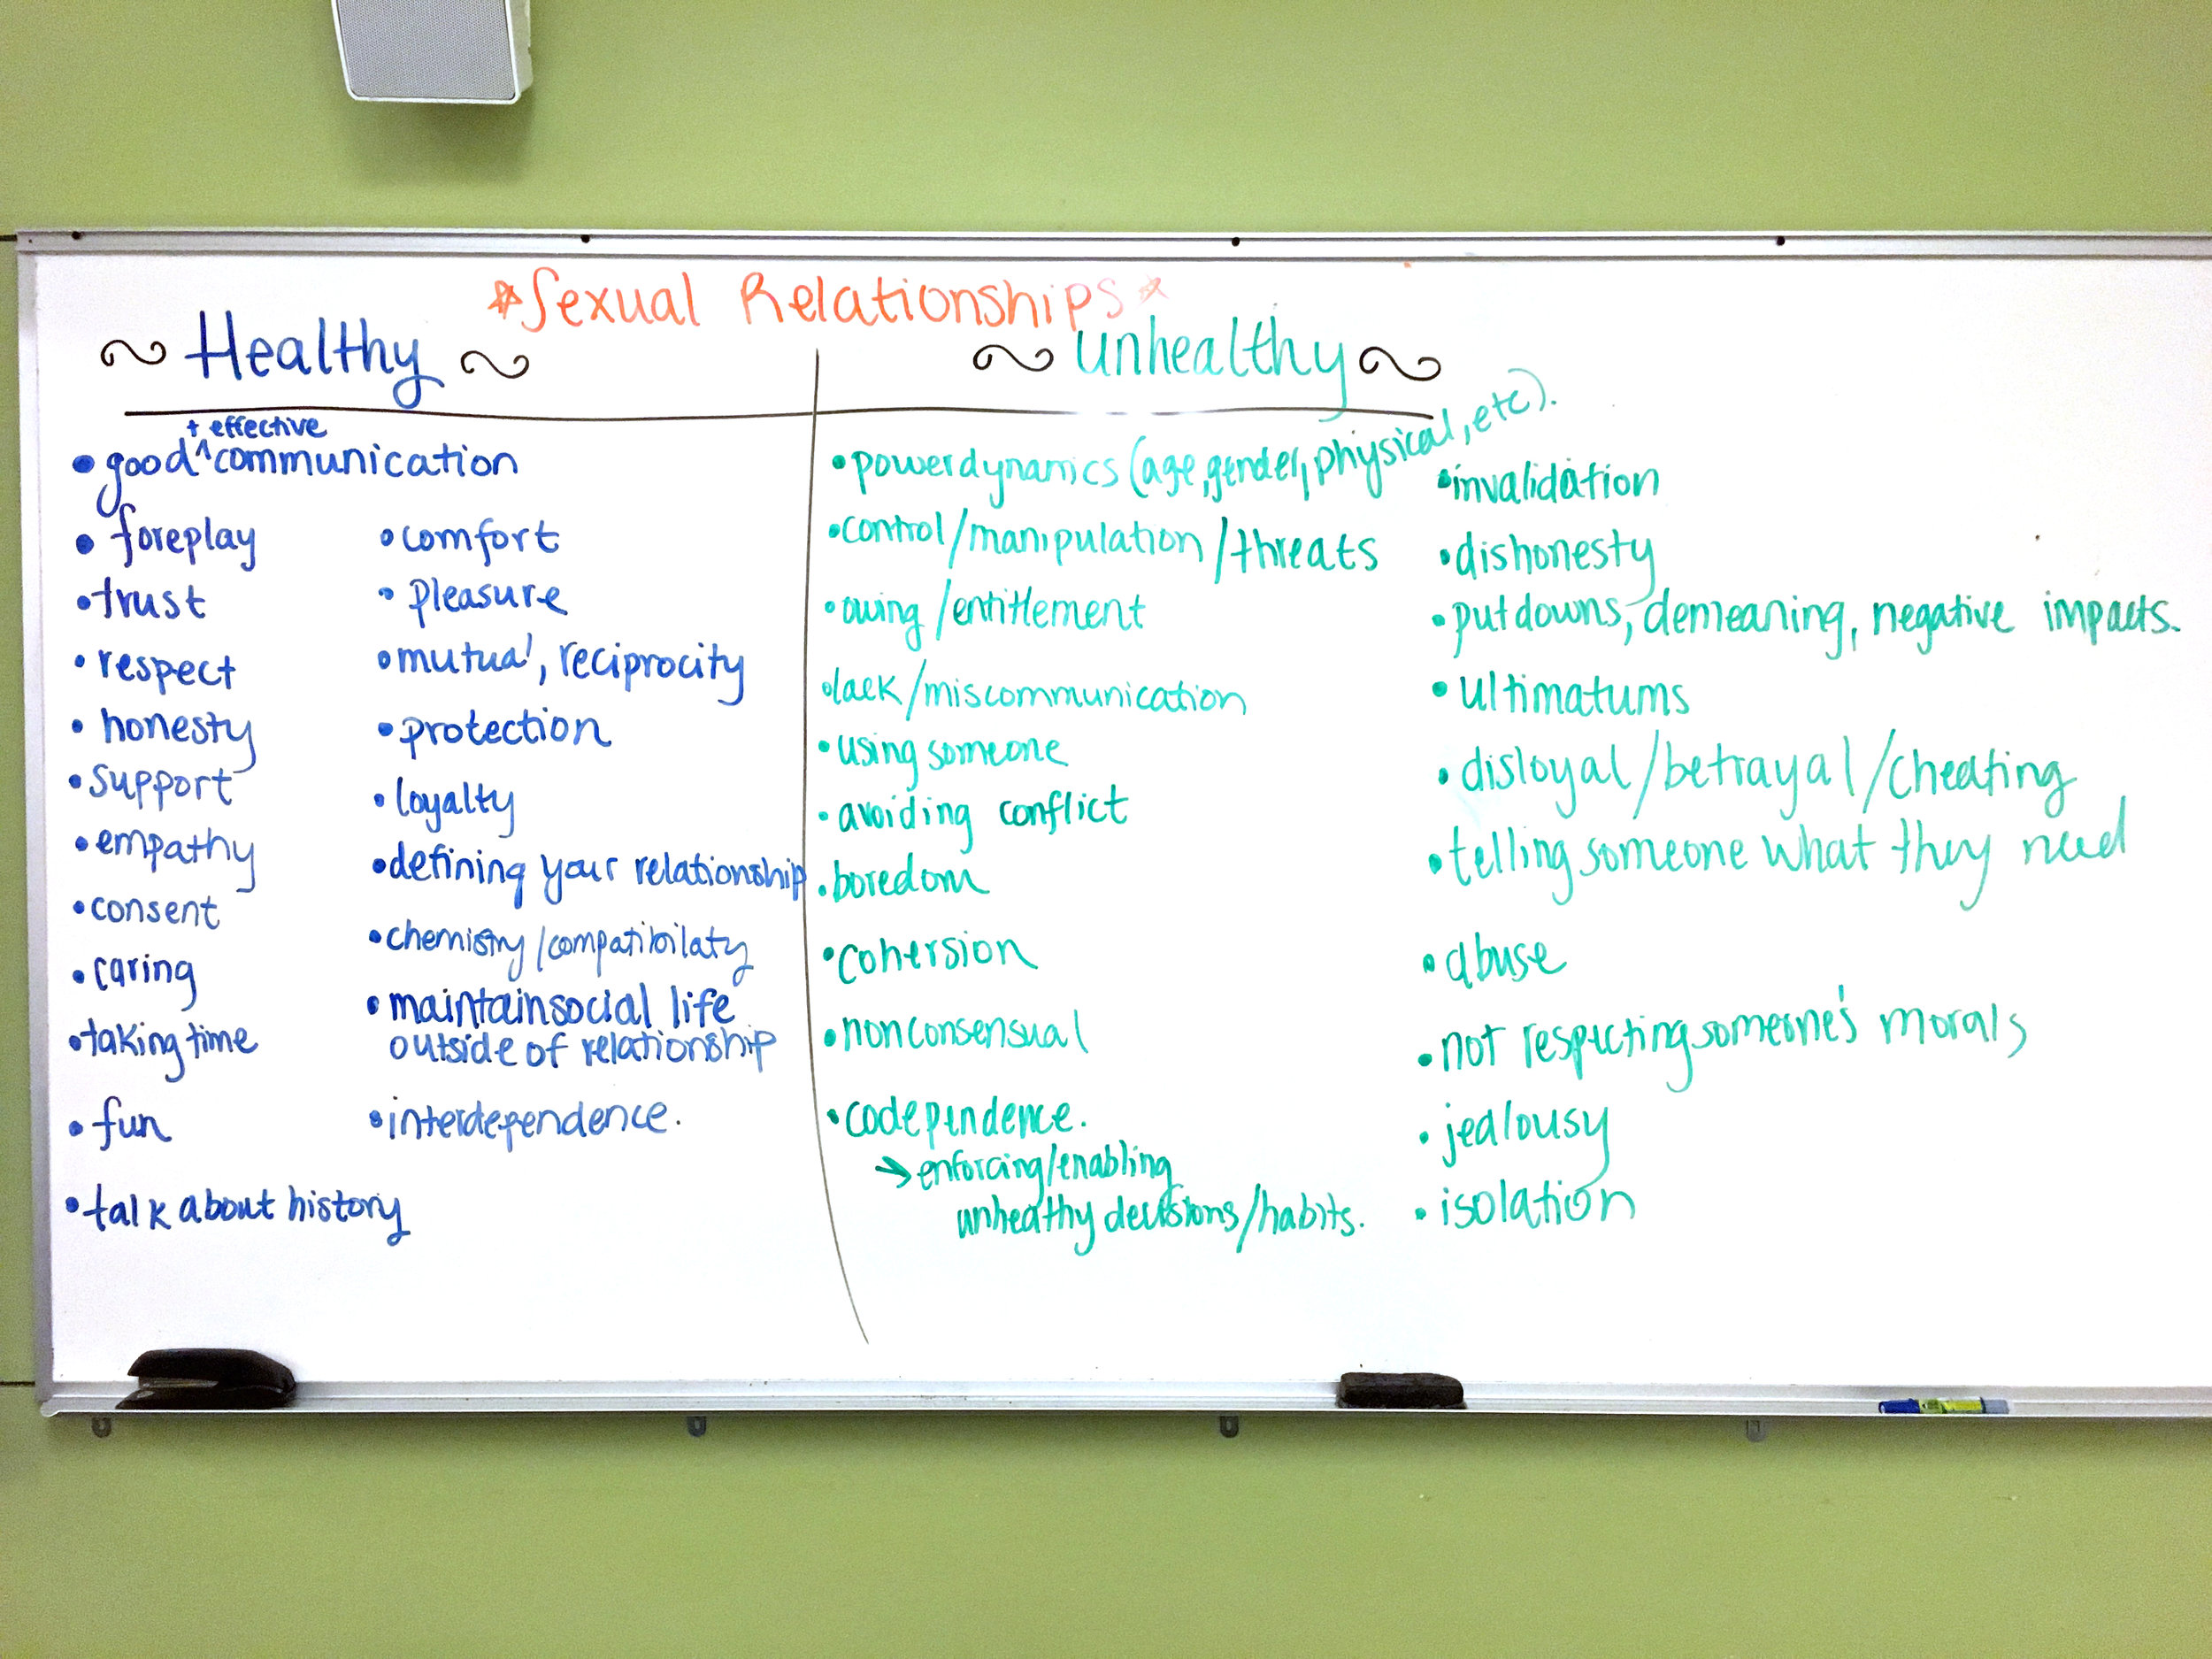 *Sexual Relationships*
Healthy
+ effective
• good ^ communication
• foreplay
• trust
• respect
• honesty
• support
• empathy
• consent
• caring
• taking time
• fun
• talk about history
• comfort
• pleasure
• mutual, reciprocity
• protection
• loyalty
• defining your relationship
• chemistry/compatibilaty
• maintain social life
outside of relationship
• interdependence.
unhealthy
• power dynamics (age, gender, physical, etc).
• control/manipulation/threats
• owing/entitlement
• lack/miscommunication
• using someone
• avoiding conflict
• boredom
• cohersion
• nonconsensual
• codependence.
→ enforcing/enabling
unhealthy decisions/habits.
• invalidation
• dishonesty
• put downs, demeaning, negative impacts.
• ultimatums
• disloyal/betrayal/cheating
• telling someone what they need
• abuse
• not respecting someone's morals
• jealousy
• isolation